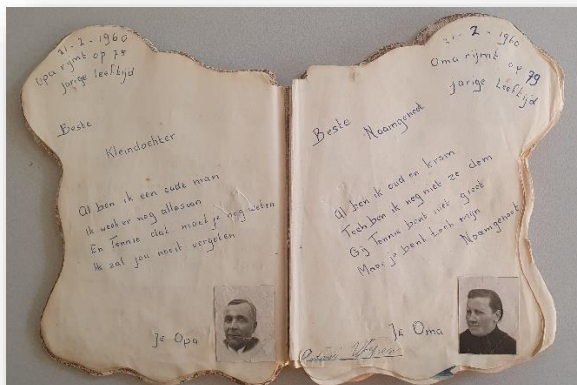 21-2-1960
Opa rijmt op 75
jarige leeftijd
Beste
Kleindochter
Al ben ik een oude man
Ik weet er nog alles van
En Tennie dat moet je nog weten
Ik zal jou nooit vergeten
Je Opa
21-2-1960
Oma rijmt op 79
jarige leeftijd
Beste
Naamgenoot
Al ben ik oud en krom
Toch ben ik nog niet ze dom
Gij Tennie bent niet groot
Maar je bent toch mijn
Naamgenoot
Je Oma